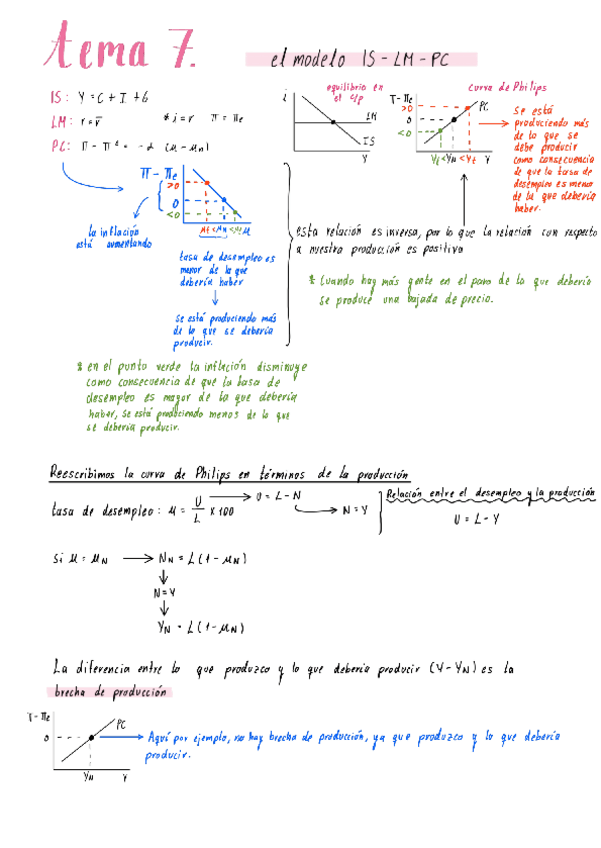 tema 7.
el modelo IS - LM - PC
IS: Y = C + I + G
LM: r = r̄
* i = r π = πe
PC: π - πe = -α (u - un)
equilibrio en
el c/p
i
LM
IS
Y
Curva de Philips
π - πe
>0
0
<0
PC
Yt < YN < Yt Y
Se está
produciendo más
de lo que se
debe producir
como consecuencia
de que la tasa de
desempleo es menor
de la que debería
haber.
π - πe
>0
0
<0
μt < μN < μt μ
la inflación
está aumentando
tasa de desempleo es
menor de lo que
debería haber
se está produciendo más
de lo que se debería
producir.
esta relación es inversa, por lo que la relación con respecto
a nuestra producción es positiva
* Cuando hay más gente en el paro de lo que debería
se produce una bajada de precio.
* en el punto verde la inflación disminuye
como consecuencia de que la tasa de
desempleo es mayor de lo que debería
haber, se está produciendo menos de lo que
se debería producir.
Reescribimos la curva de Philips en términos de la producción
tasa de desempleo: μ = U/L x 100
U = L - N
N = Y
Relación entre el desempleo y la producción
U = L - Y
Si μ = μN
NN = L (1 - μN)
N = Y
YN = L (1 - μN)
La diferencia entre lo que produzco y lo que debería producir (Y - YN) es la
brecha de producción
π - πe
0
PC
YN Y
Aquí por ejemplo, no hay brecha de producción, ya que produzco y lo que debería
producir.